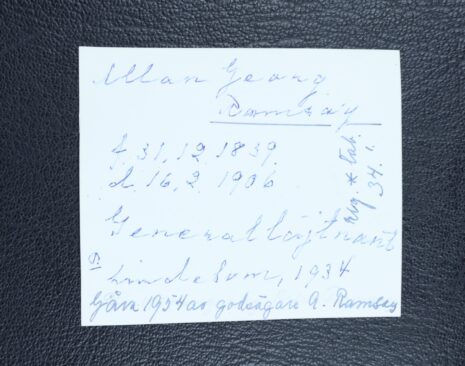 Allan Georg
Ramsay
f. 31.12.1839.
d. 16.2.1906
Generallöjtnant
Lindeberg, 1934
Gåva 1954 av godsägare A. Ramsay
34.1.